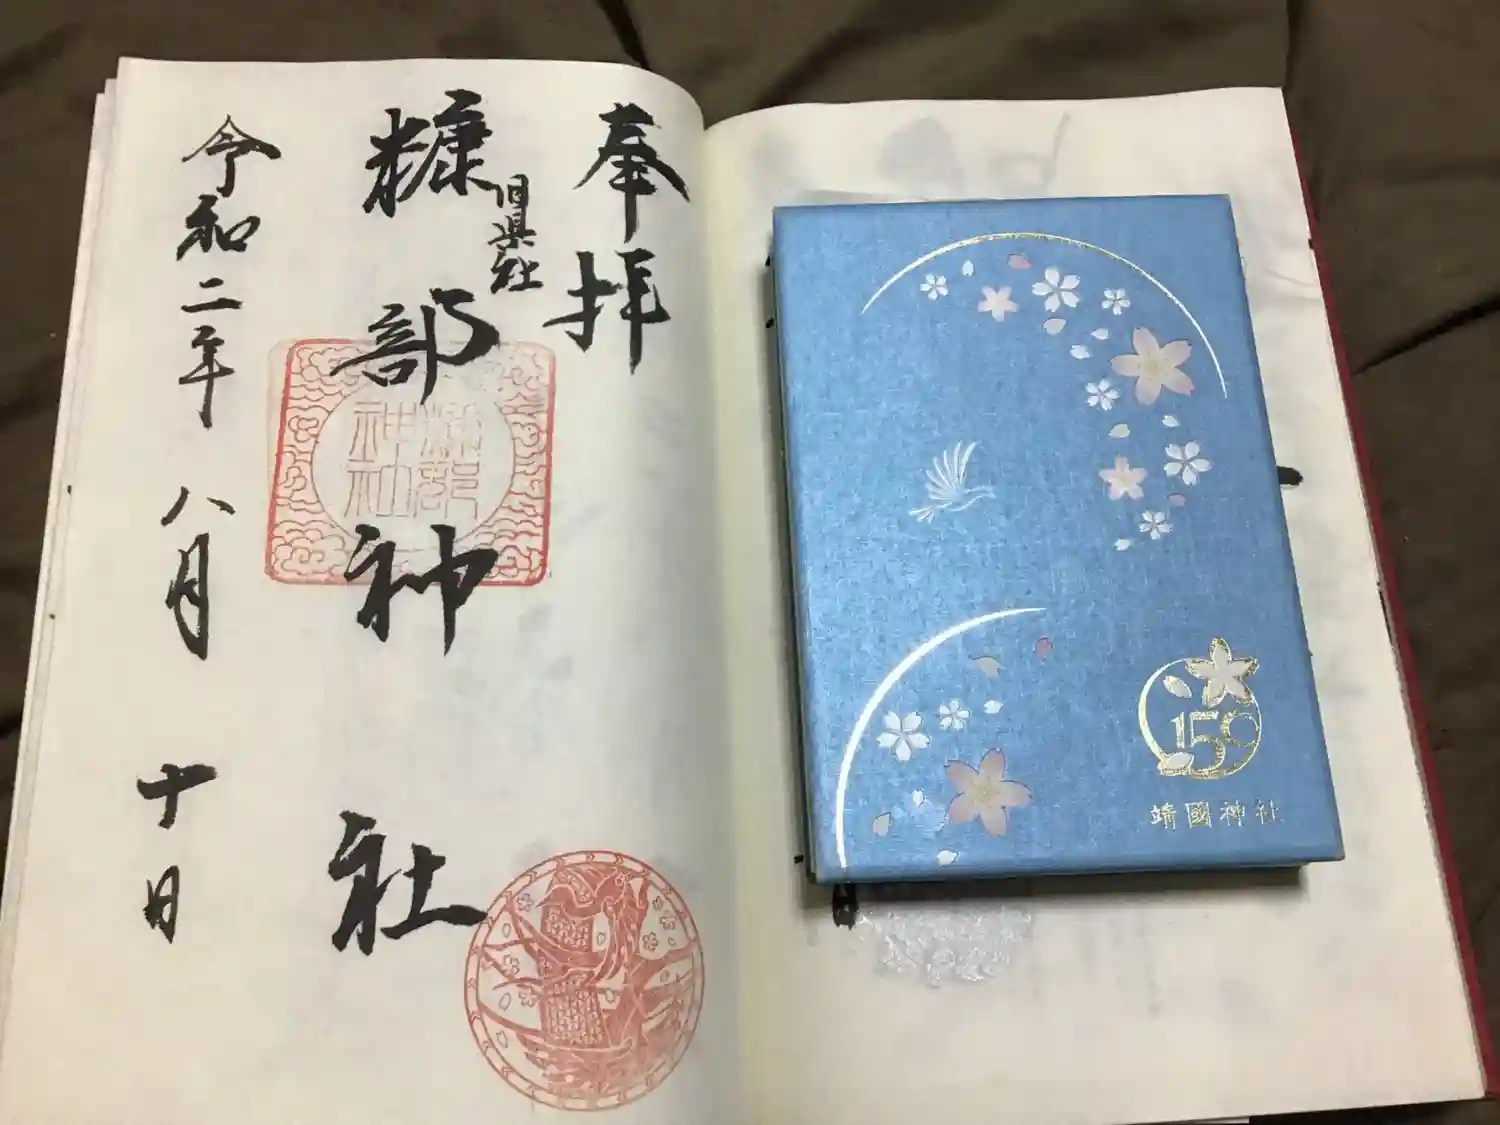 奉拝
旧県社
糠部神社
令和二年八月十日
糠部
神社
150
靖國神社